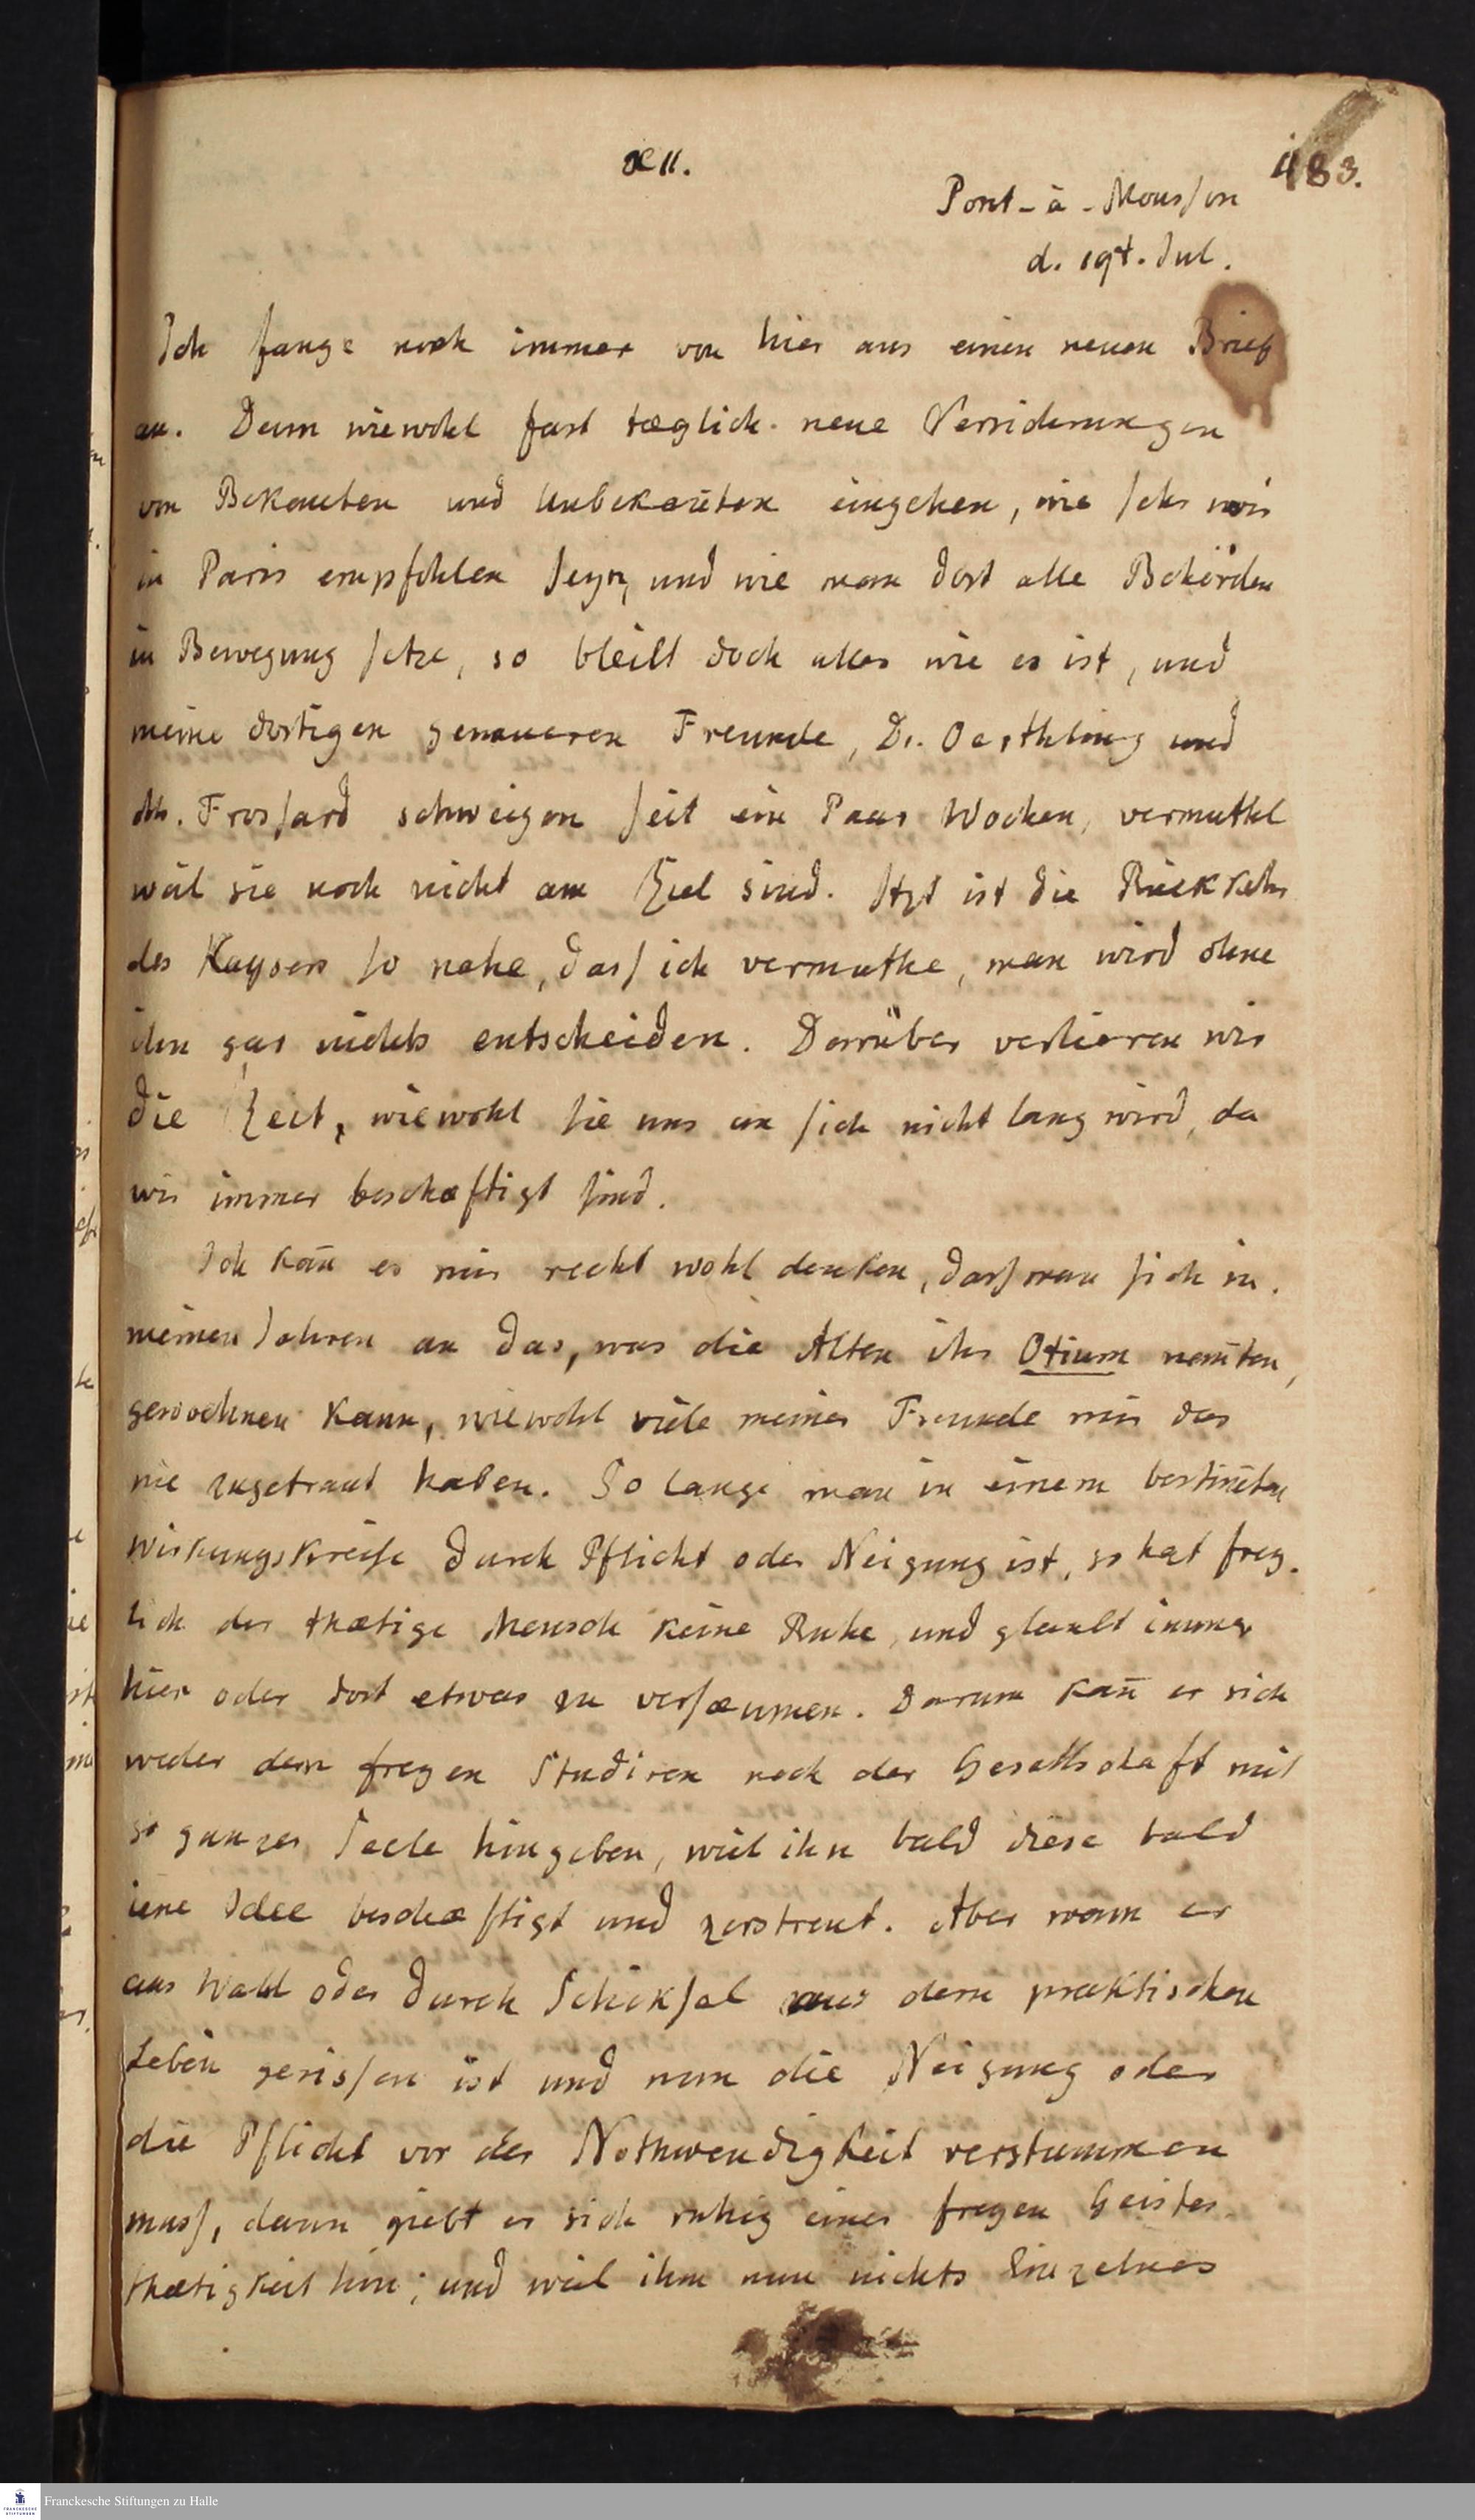 XII.
183.
Pont-à-Mousson
d. 19t. Jul.
Ich fange noch immer von hier aus einen neuen Brief
an. Denn wiewohl fast tæglich neue Versicherungen
von Bekannten und Unbekañten eingehen, wie sehr wir
in Paris empfohlen seyn, und wie man dort alle Behörden
in Bewegung setze, so bleibt doch alles wie es ist, und
meine dortigen genaueren Freunde, Dr. Oesthling und
M. Frossard schweigen seit ein Paar Wochen, vermuthl
weil sie noch nicht am Ziel sind. Itzt ist die Rückkehr
des Kaysers so nahe, dass ich vermuthe, man wird ohne
ihn gar nichts entscheiden. Darüber verlieren wir
die Zeit, wiewohl sie uns an sich nicht lang wird, da
wir immer beschæftigt sind.
Ich kañ es mir recht wohl denken, dass man sich in
meinen Jahren an das, was die Alten ihr Otium nañten,
gewoehnen kann, wiewohl viele meiner Freunde mir das
nie zugetraut haben. So lange man in einem bestim̃ten
Wirkungskreise durch Pflicht oder Neigung ist, so hat frey-
lich der thætige Mensch keine Ruhe, und glaubt immer
hier oder dort etwas zu versæumen. Darum kañ er sich
weder dem freyen Studiren noch der Gesellschaft mit
so ganzer Seele hingeben, weil ihn bald diese bald
iene Idee beschæftigt und zerstreut. Aber wann er
aus Wahl oder durch Schicksal aus dem praktischen
Leben gerissen ist und nun die Neigung oder
die Pflicht vor der Nothwendigkeit verstummen
muss, dann giebt er sich ruhig einer freyen Geistes
thætigkeit hin; und weil ihm nun nichts Einzelnes
Franckesche Stiftungen zu Halle